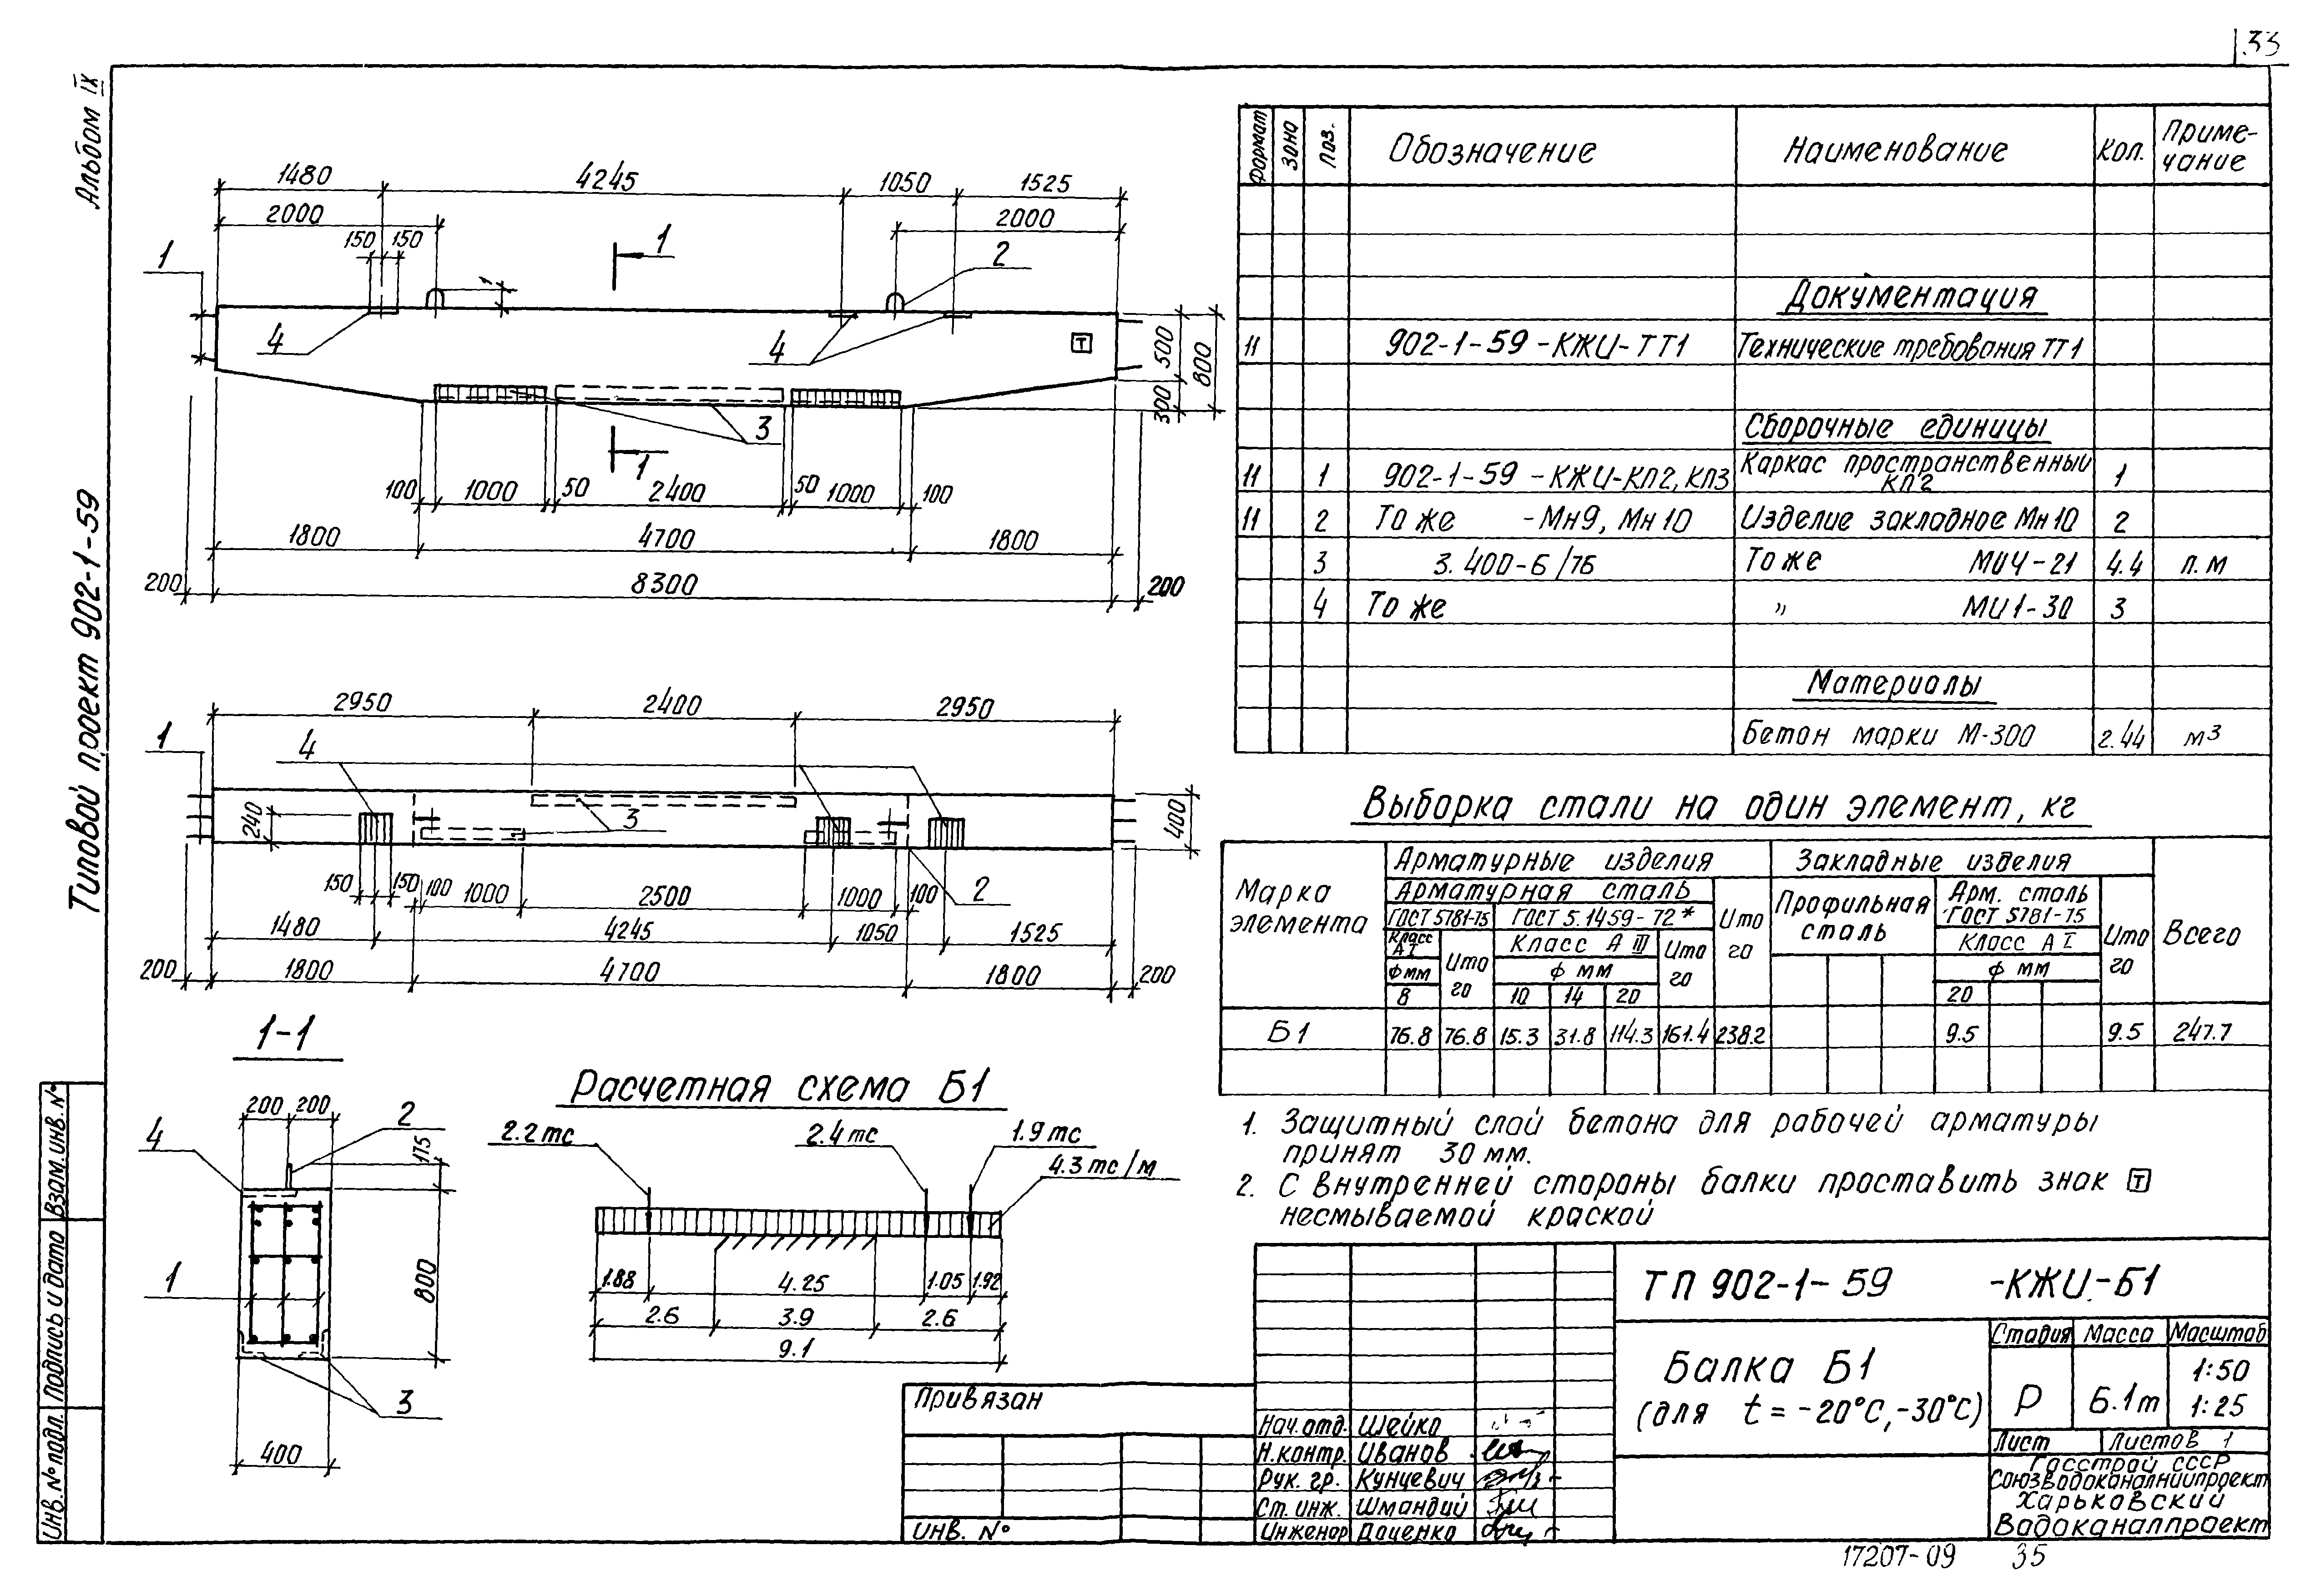 33
Альбом IX
Типовой проект 902-1-59
1480 4245 1050 1525
2000 2000
150 150
1 1 1 2
4 4
T
500
300
800
3
1
100 1000 50 2400 50 1000 100
1800 4700 1800
200 8300 200
2950 2400 2950
1 4
240 3 400
150 150 100 1000 2500 1000 100 2
1480 4245 1050 1525
200 1800 4700 1800 200
1-1
200 200 2
4 175
1 800
3
400
Расчетная схема Б1
2.2тс 2.4тс 1.9тс
4.3тс/м
1.88 4.25 1.05 1.92
2.6 3.9 2.6
9.1
Формат Зона Поз. Обозначение Наименование Кол. Приме-
чание
Документация
11 902-1-59 -КЖИ-ТТ1 Технические требования ТТ1
Сборочные единицы
11 1 902-1-59 -КЖИ-КП2, КП3 Каркас пространственный КП2 1
11 2 То же -Мн9, Мн10 Изделие закладное Мн10 2
3 3.400-6/76 То же МИ4-21 4.4 п.м
4 То же " МИ1-30 3
Материалы
Бетон марки М-300 2.44 м3
Выборка стали на один элемент, кг
Марка
элемента
Арматурные изделия Закладные изделия
Арматурная сталь Итого Профильная
сталь Арм. сталь
ГОСТ 5781-75 Итого Всего
ГОСТ 5781-75 ГОСТ 5.1459-72*
Класс АI Итого Класс А III Итого Класс А I
ф мм ф мм ф мм
8 10 14 20 20
Б1 76.8 76.8 15.3 31.8 114.3 161.4 238.2 9.5 9.5 247.7
1. Защитный слой бетона для рабочей арматуры
принят 30 мм.
2. С внутренней стороны балки проставить знак T
несмываемой краской
ТП 902-1-59 -КЖИ-Б1
Балка Б1
(для t = -20°С, -30°С)
Стадия Масса Масштаб
Р 6.1т 1:50
1:25
Лист Листов 1
Госстрой СССР
Союзводоканалниипроект
Харьковский
Водоканалпроект
Привязан
Инв. №
Нач.отд. Шейко
Н.контр. Иванов
Рук. гр. Кунцевич
Ст. инж. Шмандий
Инженер Даценко
Инв. № подл. Подпись и дата Взам. инв. №
17207-09 35